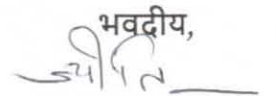 भवदीय,
ज्योति